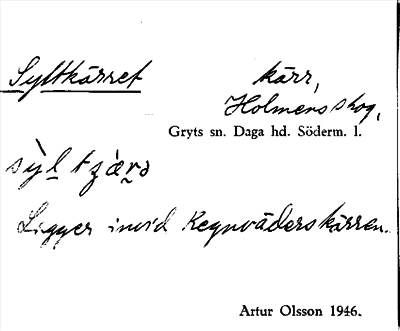 Syltkärret kärr,
Holmens skog,
Gryts sn. Daga hd. Söderm. l.
Ligger invid Regnväderskärren.
Artur Olsson 1946.